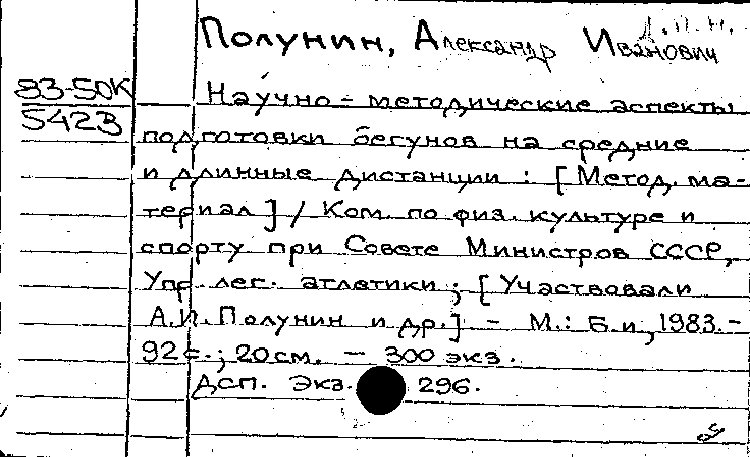 Д.П.Н.
Полунин, Александр Иванович
83-50К
5423
Научно-методические аспекты
подготовки бегунов на средние
и длинные дистанции : [Метод. ма-
териал] / Ком. по физ. культуре и
спорту при Совете Министров СССР,
Упр. лег. атлетики ; [Участвовали
А.И.Полунин и др.] - М.: Б.и., 1983.-
92 с.; 20 см. — 300 экз.
Дсп. Экз. 296.